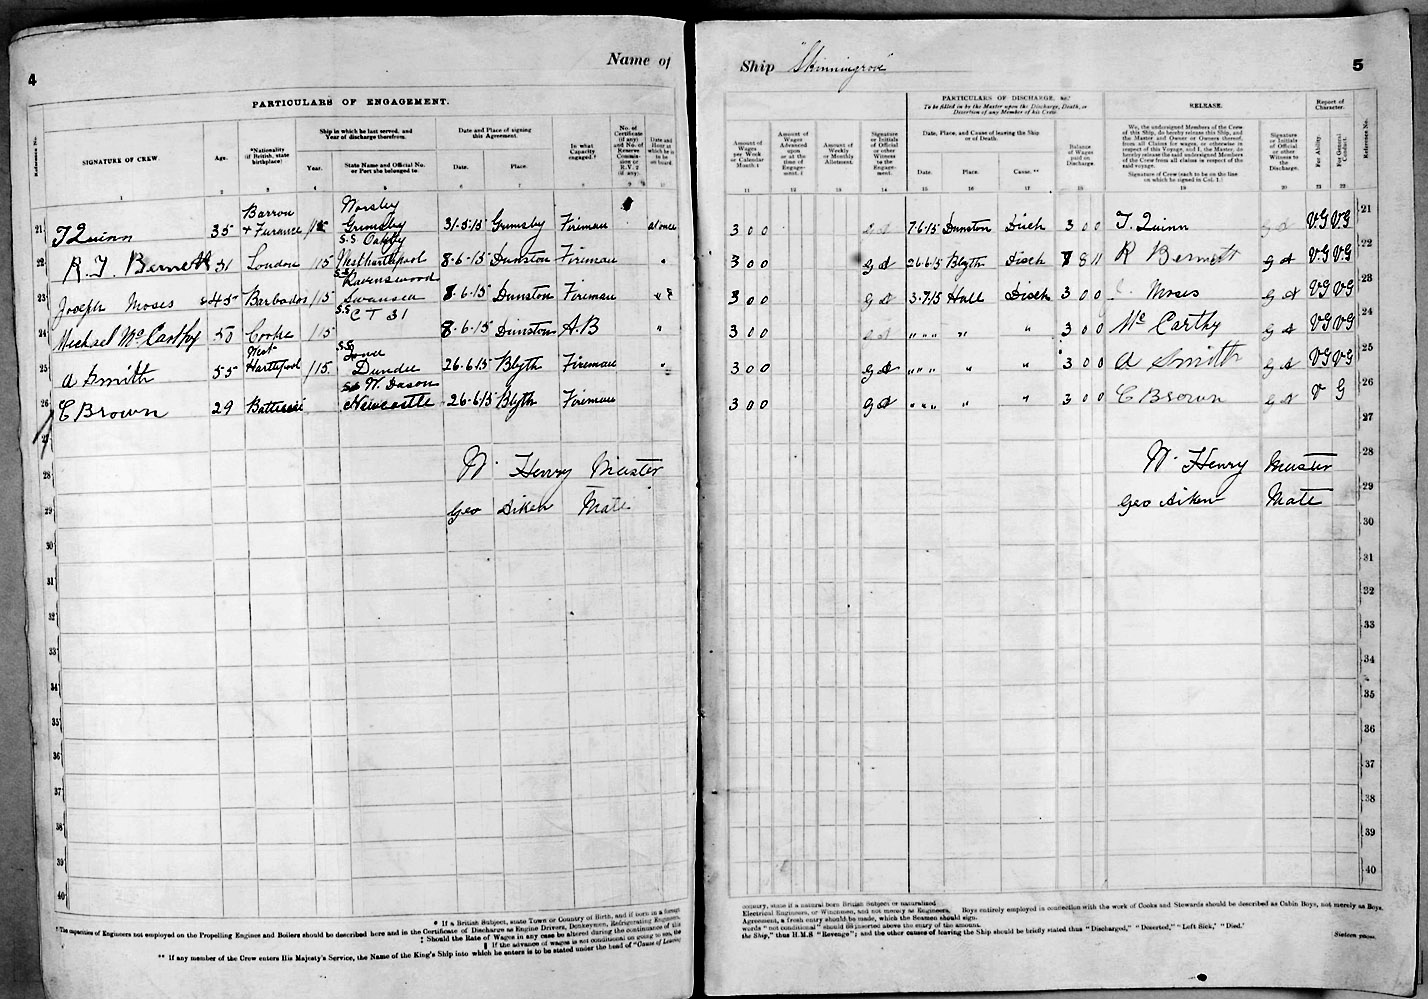 4
Name of
PARTICULARS OF ENGAGEMENT.
Reference No.
SIGNATURE OF CREW
Age.
*Nationality (if British, state birthplace)
Ship in which he last served, and Year of discharge therefrom.
Year.
State Name and Official No. or Port she belonged to
Date and Place of signing this Agreement.
Date.
Place.
In what Capacity engaged.†
No. of Certificate (if any) and No. of Reserve Commission or R.V.2 (if any).
Date and Hour at which he is to be on board.
1 2 3 4 5 6 7 8 9 10
21 T Quinn 35 Barrow + Furance /15 Worsley Grimsby 31-5-15 Grimsby Fireman at once
22 R. J. Bennett 31 London /15 S.S Oakby West hartlepool 8-6-15 Dunston Fireman "
23 Joseph Moses 45 Barbados /15 S.S Ravenswood Swansea 8-6-15 Dunston Fireman "
24 Michael Mc Carthy 50 /15 S.S C T 31 8-6-15 Dunston A.B "
25 A Smith 55 West Hartlepool /15 S.S Dundee 26-6-15 Blyth Fireman "
26 C Brown 29 Newcastle 26-6-15 Blyth Fireman
27
28 W. Henry Master
29 Geo Aiken Mate
30
31
32
33
34
35
36
37
38
39
40
* If a British Subject, state Town or Country of Birth, and if born in a foreign
† The capacities of Engineers not employed on the Propelling Engines and Boilers should be described here and in the Certificate of Discharge as Engine Drivers, Donkeymen, Refrigerating Engineers,
‡ Should the Rate of Wages in any case be altered during the continuance of this
‖ If the advance of wages is not conditional on going to sea, the
** If any member of the Crew enters His Majesty's Service, the Name of the King's Ship into which he enters is to be stated under the head of "Cause of Leaving
Ship "Skinningrove"
5
Amount of Wages per Week or Calendar Month.‡
Amount of Wages Advanced upon or at the time of Engagement.‖
Amount of Weekly or Monthly Allotment.
Signature or Initials of Official or other Witness to the Engagement.
PARTICULARS OF DISCHARGE, &c.
To be filled in by the Master upon the Discharge, Death, or Desertion of any Member of his Crew.
Date, Place, and Cause of leaving the Ship or of Death.
Date.
Place.
Cause.**
Balance of Wages paid on Discharge.
RELEASE.
We, the undersigned Members of the Crew of this Ship, do hereby release this Ship, and the Master and Owner or Owners thereof, from all Claims for wages, or otherwise in respect of this Voyage, and I, the Master, do hereby release the said undersigned Members of the Crew from all claims in respect of the said voyage.
Signature of Crew (each to be on the line on which he signed in Col. 1.)
Signature or Initials of Official or other Witness to the Discharge.
Report of Character.
For Ability.
For General Conduct.
Reference No.
11 12 13 14 15 16 17 18 19 20 21 22
3 0 0 7-6-15 Dunston Disch 3 0 0 T. Quinn V.G V G 21
3 0 0 26-6-15 Blyth Disch 8 11 R Bennett V.G V G 22
3 0 0 3-7-15 Hull Disch 3 0 0 Moses V G V G 23
3 0 0 " " " " " 3 0 0 Mc Carthy V G V G 24
3 0 0 " " " " " 3 0 0 A Smith V G V G 25
3 0 0 " " " " " 3 0 0 C Brown V G 26
27
W. Henry Master 28
Geo Aiken Mate 29
30
31
32
33
34
35
36
37
38
39
40
country, state if a natural born British Subject or naturalized
Electrical Engineers, or Winchmen, and not merely as Engineers. Boys entirely employed in connection with the work of Cooks and Stewards should be described as Cabin Boys, not merely as Boys.
Agreement, a fresh entry should be made, which the Seamen should sign.
words "not conditional" should be inserted above the entry of the amount.
the Ship," thus H.M.S "Revenge"; and the other causes of leaving the Ship should be briefly stated thus "Discharged," "Deserted," "Left Sick," "Died."